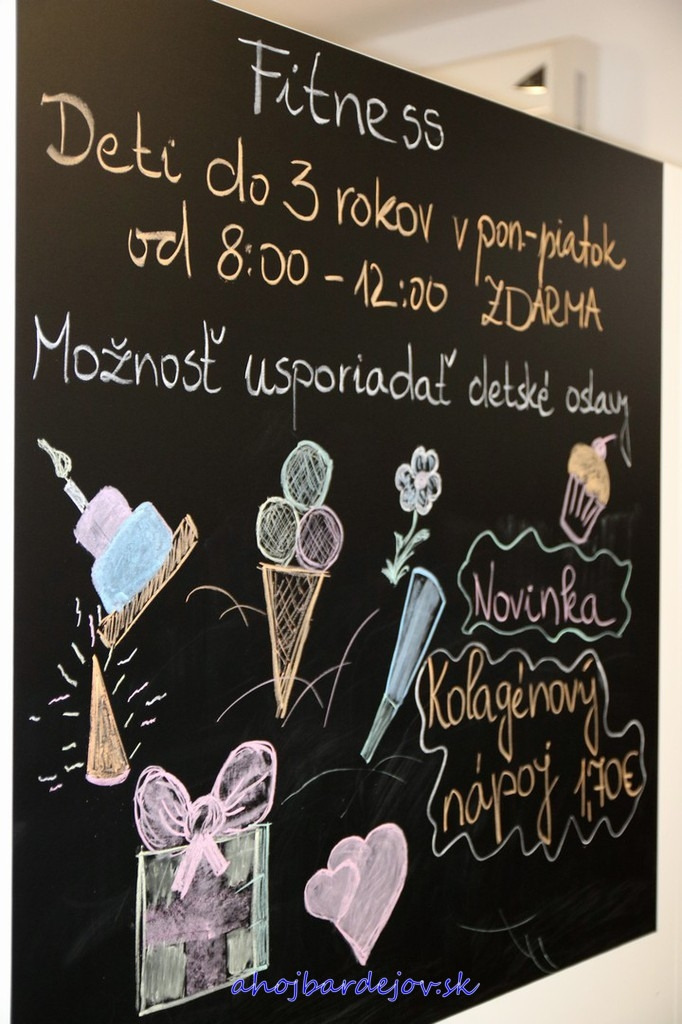 Fitness
Deti do 3 rokov v pon-piatok
od 8:00 - 12:00 ZDARMA
Možnosť usporiadať detské oslavy
Novinka
Kolagénový
nápoj 1,70€
ahojbardejov.sk